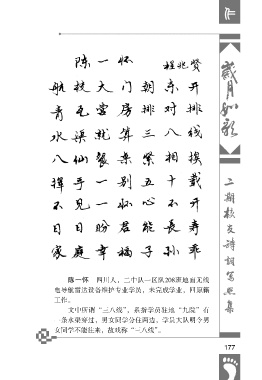 陈一怀 程兆贤
航校大门朝东开
青瓦营房排对排
水渠就算三八线
八仙餐桌紧相挨
挥手一别五十载
不见一怀心不开
日日盼君能长寿
家庭幸福子孙乖
陈一怀 四川人，二中队一区队208班地面无线
电导航雷达设备维护专业学员，未完成学业，回原籍
工作。
文中所谓“三八线”，系指学员驻地“九院”有
一条水渠穿过，男女同学分住两边，学员大队明令男
女同学不能往来，故戏称“三八线”。
岁月如歌
二期校友诗词写照集
177